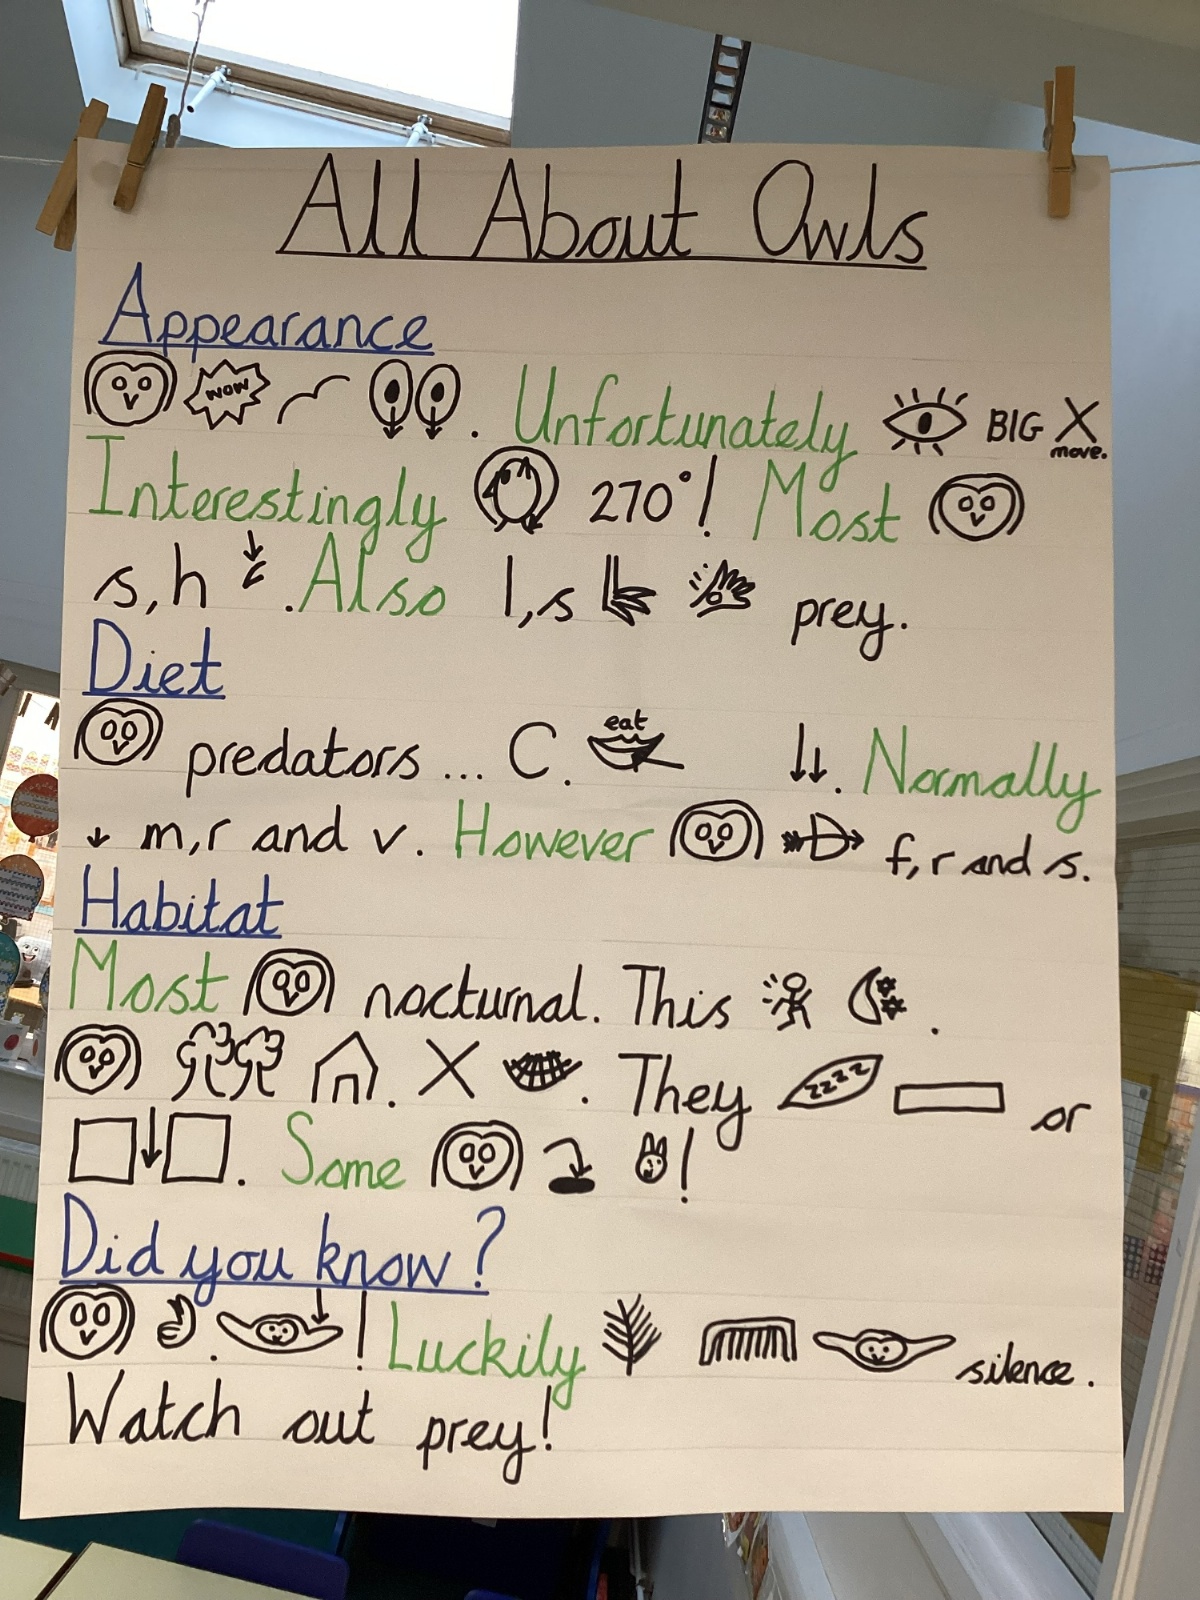 All About Owls
Appearance
WOW . Unfortunately BIG X move.
Interestingly 270°! Most
s, h . Also l, s prey.
Diet
predators ... C. eat . Normally
m, r and v. However f, r and s.
Habitat
Most nocturnal. This .
. X . They zzzz or
. Some !
Did you know?
. ! Luckily silence.
Watch out prey!